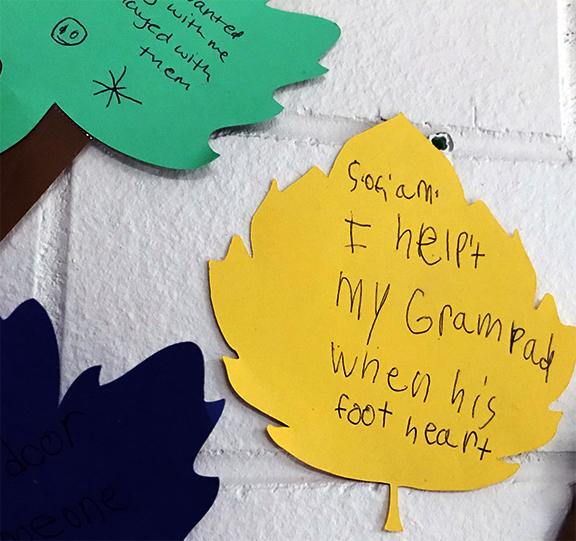 wanted
with me
played with
them
Sogiam.
I help't
My Grampad
when his
foot heart
door
meone